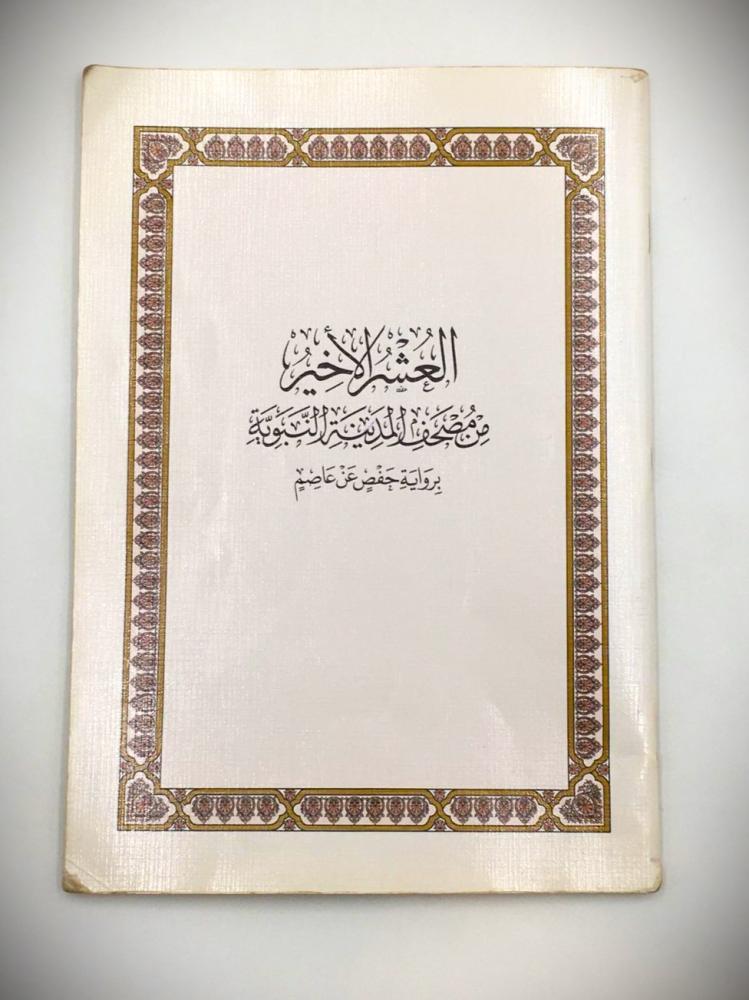 العُشْرُ الأَخِيرُ
مِن مُصْحَفِ المَدِينَةِ النَّبَوِيَّةِ
بِرِوَايَةِ حَفْصٍ عَنْ عَاصِمٍ